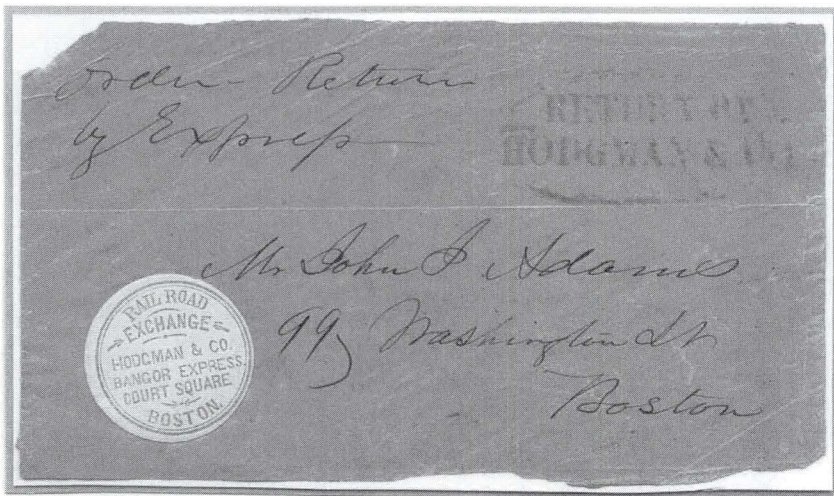 Order Return
by Express
HODGMAN & CO
Mr John J Adams
99 Washington St
Boston
RAIL ROAD
EXCHANGE
HODGMAN & CO.
BANGOR EXPRESS.
COURT SQUARE
BOSTON.